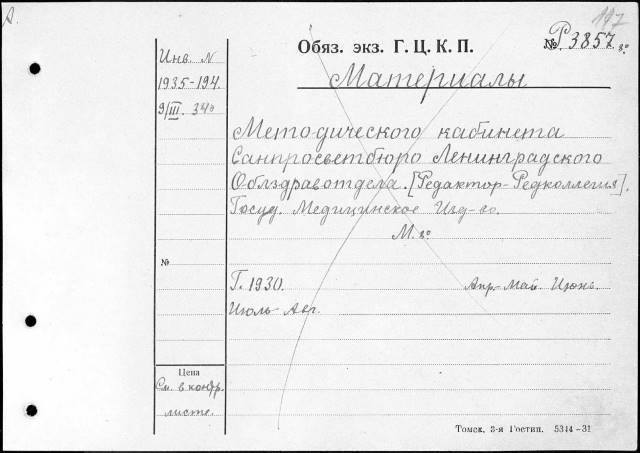 А.
197
Обяз. экз. Г. Ц. К. П. № Р. 3857. 8°
Инв. N
1935-194.
9/III. 34г
Материалы
Методического кабинета
Санпросветбюро Ленинградского
Облздравотдела. [Редактор-Редколлегия].
Госуд. Медицинское Изд-во.
М. 8°
№
Г. 1930. Апр.-Май. Июнь.
Июль-Авг.
Цена
См. в контр.
листе.
Томск, 3-я Гостип. 5344-31